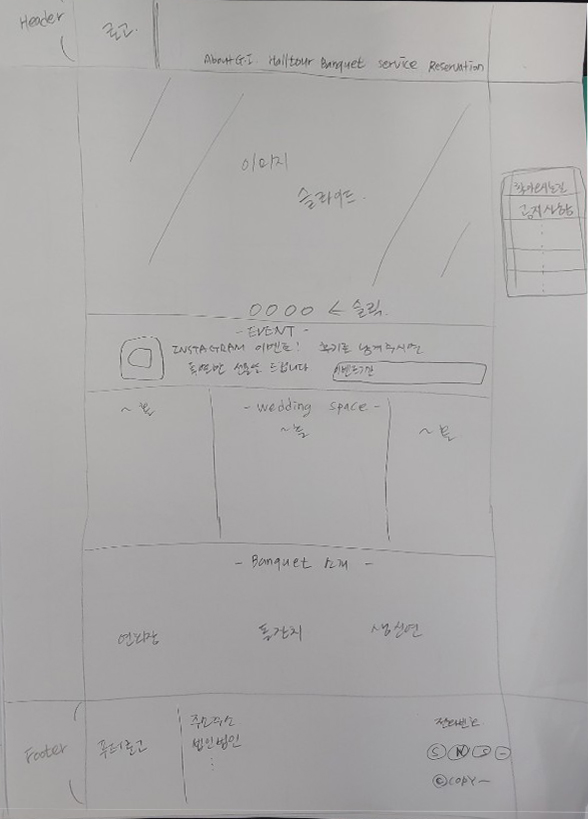 Header
로고
About G.I. Halltour Banquet service Reservation
이미지
슬라이드.
찾아오는길
공지사항
0000 ← 슬릭.
- EVENT -
INSTAGRAM 이벤트! 후기를 남겨주시면
특별한 선물을 드립니다
이벤트기간
~홀
- wedding space -
~홀
~홀
- Banquet 소개 -
연회장
돌잔치
생신연
Footer
푸터로고
주소주소
법인법인
전화번호
SNS-
©copy~